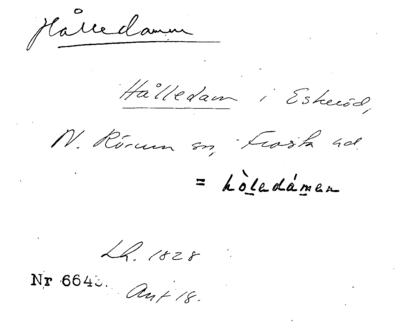 Hålledamm
Hålledam i Eskeröd,
N. Rörum sn, Frosta hd.
= hòledámen
Lh. 1828
Nr 664
Ant 18.